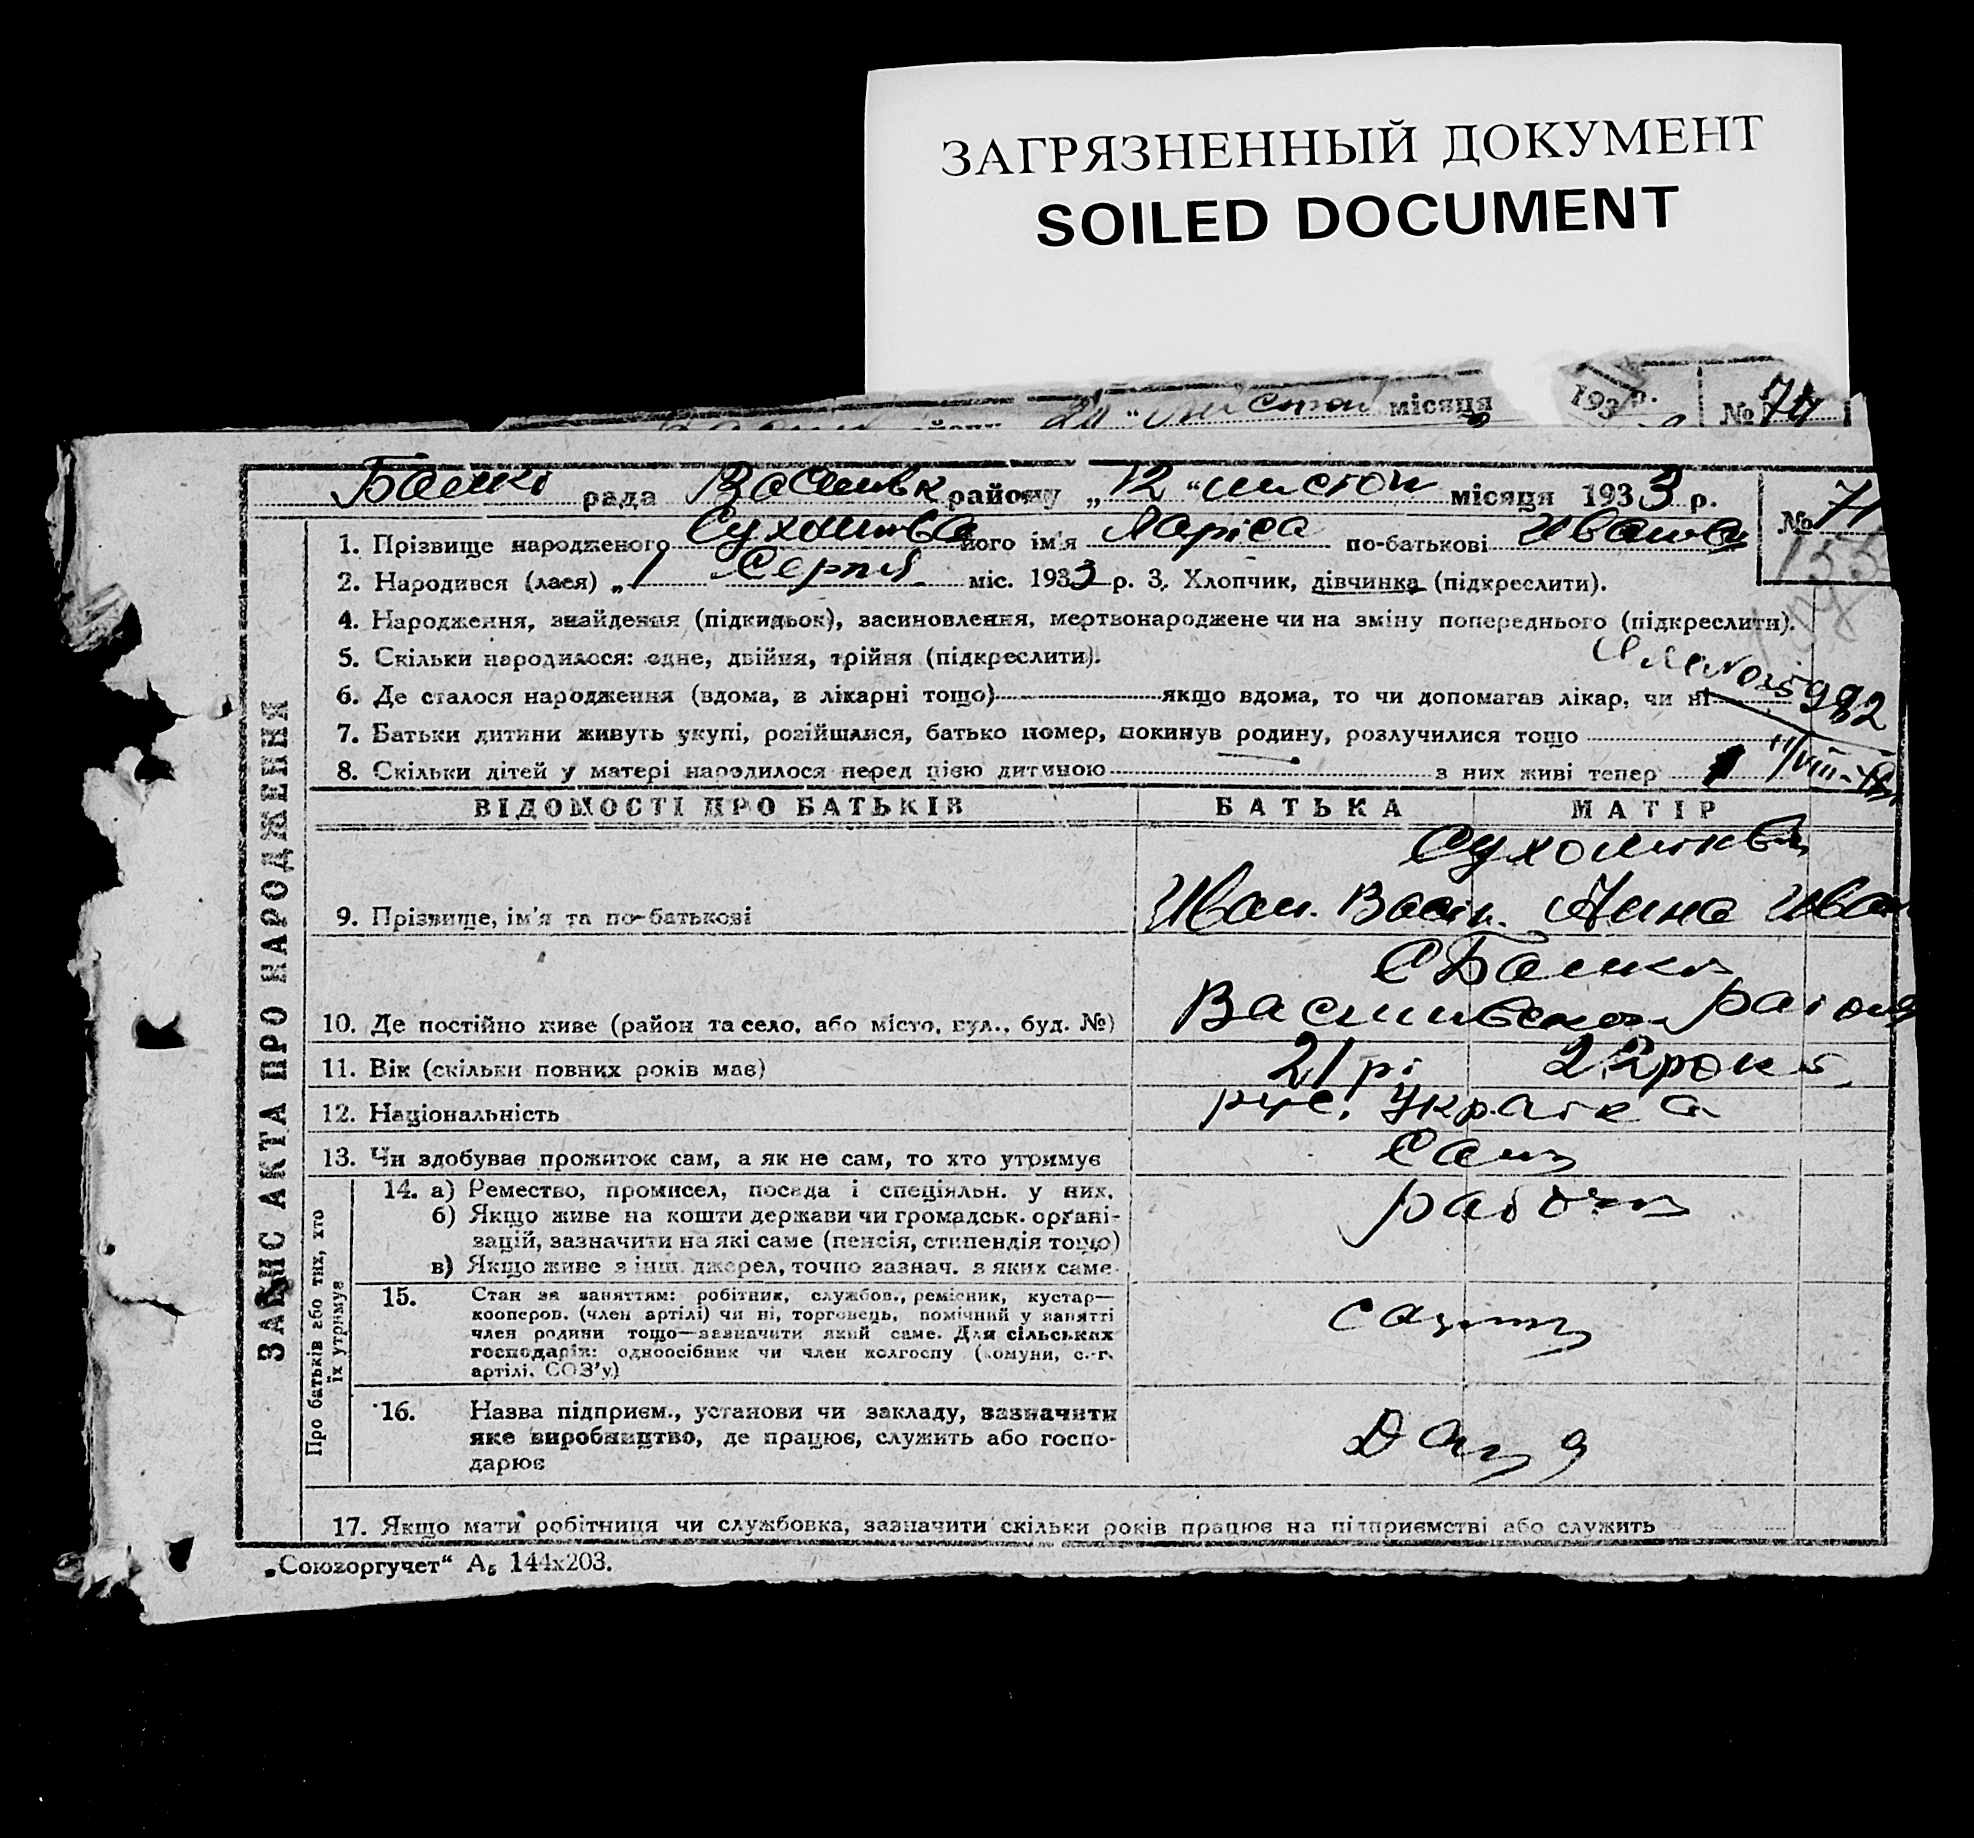 ЗАГРЯЗНЕННЫЙ ДОКУМЕНТ
SOILED DOCUMENT
місяця 193 р. № 74
рада району „12“ листоп місяця 1933 р. № 71
1. Прізвище народженого його ім'я Ларіса по-батькові Иванов
2. Народився (лася) „1 Серпня міс. 1933 р. 3. Хлопчик, дівчинка (підкреслити).
4. Народження, знайдення (підкидьок), засиновлення, мертвонароджене чи на зміну попереднього (підкреслити).
5. Скільки народилося: одне, двійня, трійня (підкреслити).
6. Де сталося народження (вдома, в лікарні тощо) якщо вдома, то чи допомагав лікар, чи ні
7. Батьки дитини живуть укупі, розійшлися, батько помер, покинув родину, розлучилися тощо
8. Скільки дітей у матері народилося перед цією дитиною з них живі тепер
ЗАПИС АКТА ПРО НАРОДЖЕННЯ
ВІДОМОСТІ ПРО БАТЬКІВ БАТЬКА МАТІР
9. Прізвище, ім'я та по-батькові Иван. Васіл. Анна Иван
10. Де постійно живе (район та село, або місто, вул., буд. №)
11. Вік (скільки повних років має) 21 рі 22 роки
12. Національність рус. Україка
13. Чи здобуває прожиток сам, а як не сам, то хто утримує Сам
Про батьків або тих, хто
їх утримує
14. а) Ремество, промисел, посада і спеціяльн. у них. рабочи
б) Якщо живе на кошти держави чи громадськ. органі-
зацій, зазначити на які саме (пенсія, стипендія тощо)
в) Якщо живе з інш. джерел, точно зазнач. з яких саме
15. Стан за заняттям: робітник, службов., ремісник, кустар—
кооперов. (член артілі) чи ні, торговець, помічний у занятті
член родини тощо—зазначити який саме. Для сільських
господарів: одноосібник чи член колгоспу (комуни, с.-г.
артілі, СОЗ'у)
16. Назва підприєм., установи чи закладу, зазначити
яке виробництво, де працює, служить або госпо-
дарює
17. Якщо мати робітниця чи службовка, зазначити скільки років працює на підприємстві або служить
„Союзоргучет“ А5 144х203.